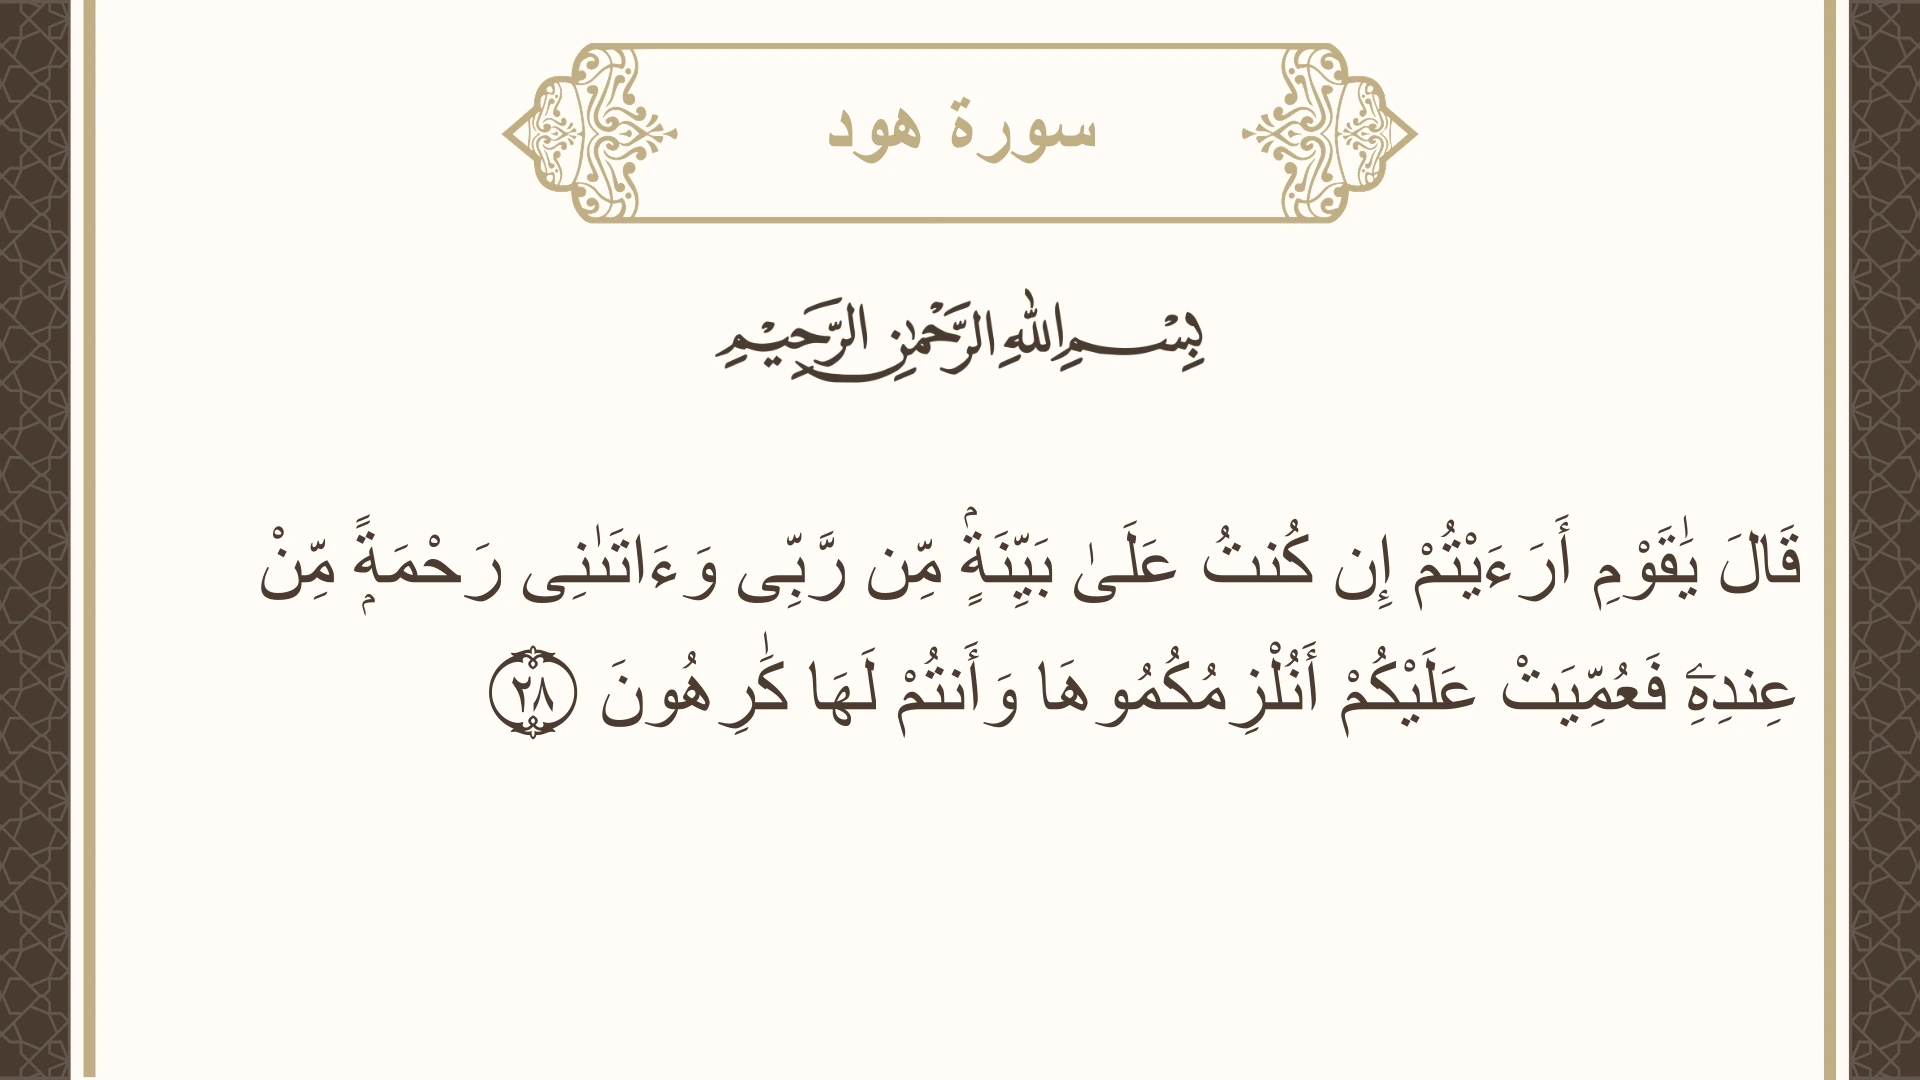 سورة هود
بِسْمِ اللهِ الرَّحْمٰنِ الرَّحِيْمِ
قَالَ يَٰقَوْمِ أَرَءَيْتُمْ إِن كُنتُ عَلَىٰ بَيِّنَةٍۢ مِّن رَّبِّى وَءَاتَىٰنِى رَحْمَةًۭ مِّنْ
عِندِهِۦ فَعُمِّيَتْ عَلَيْكُمْ أَنُلْزِمُكُمُوهَا وَأَنتُمْ لَهَا كَٰرِهُونَ ٢٨